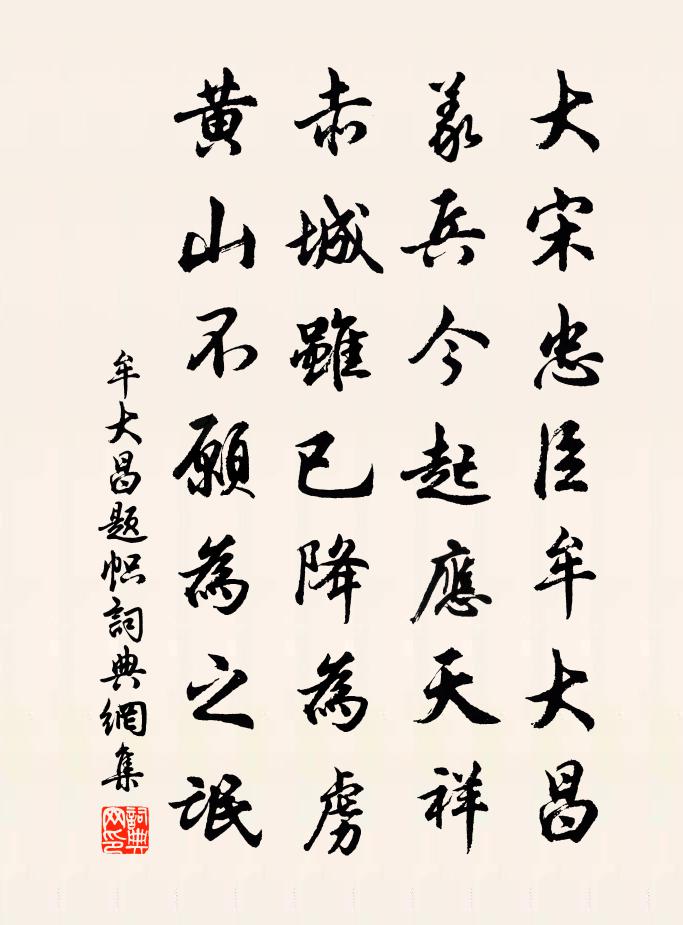 大宋忠臣牟大昌
義兵今起應天祥
赤城雖已降為虜
黄山不願為之氓
牟大昌題幟詞典網集
詞典網印